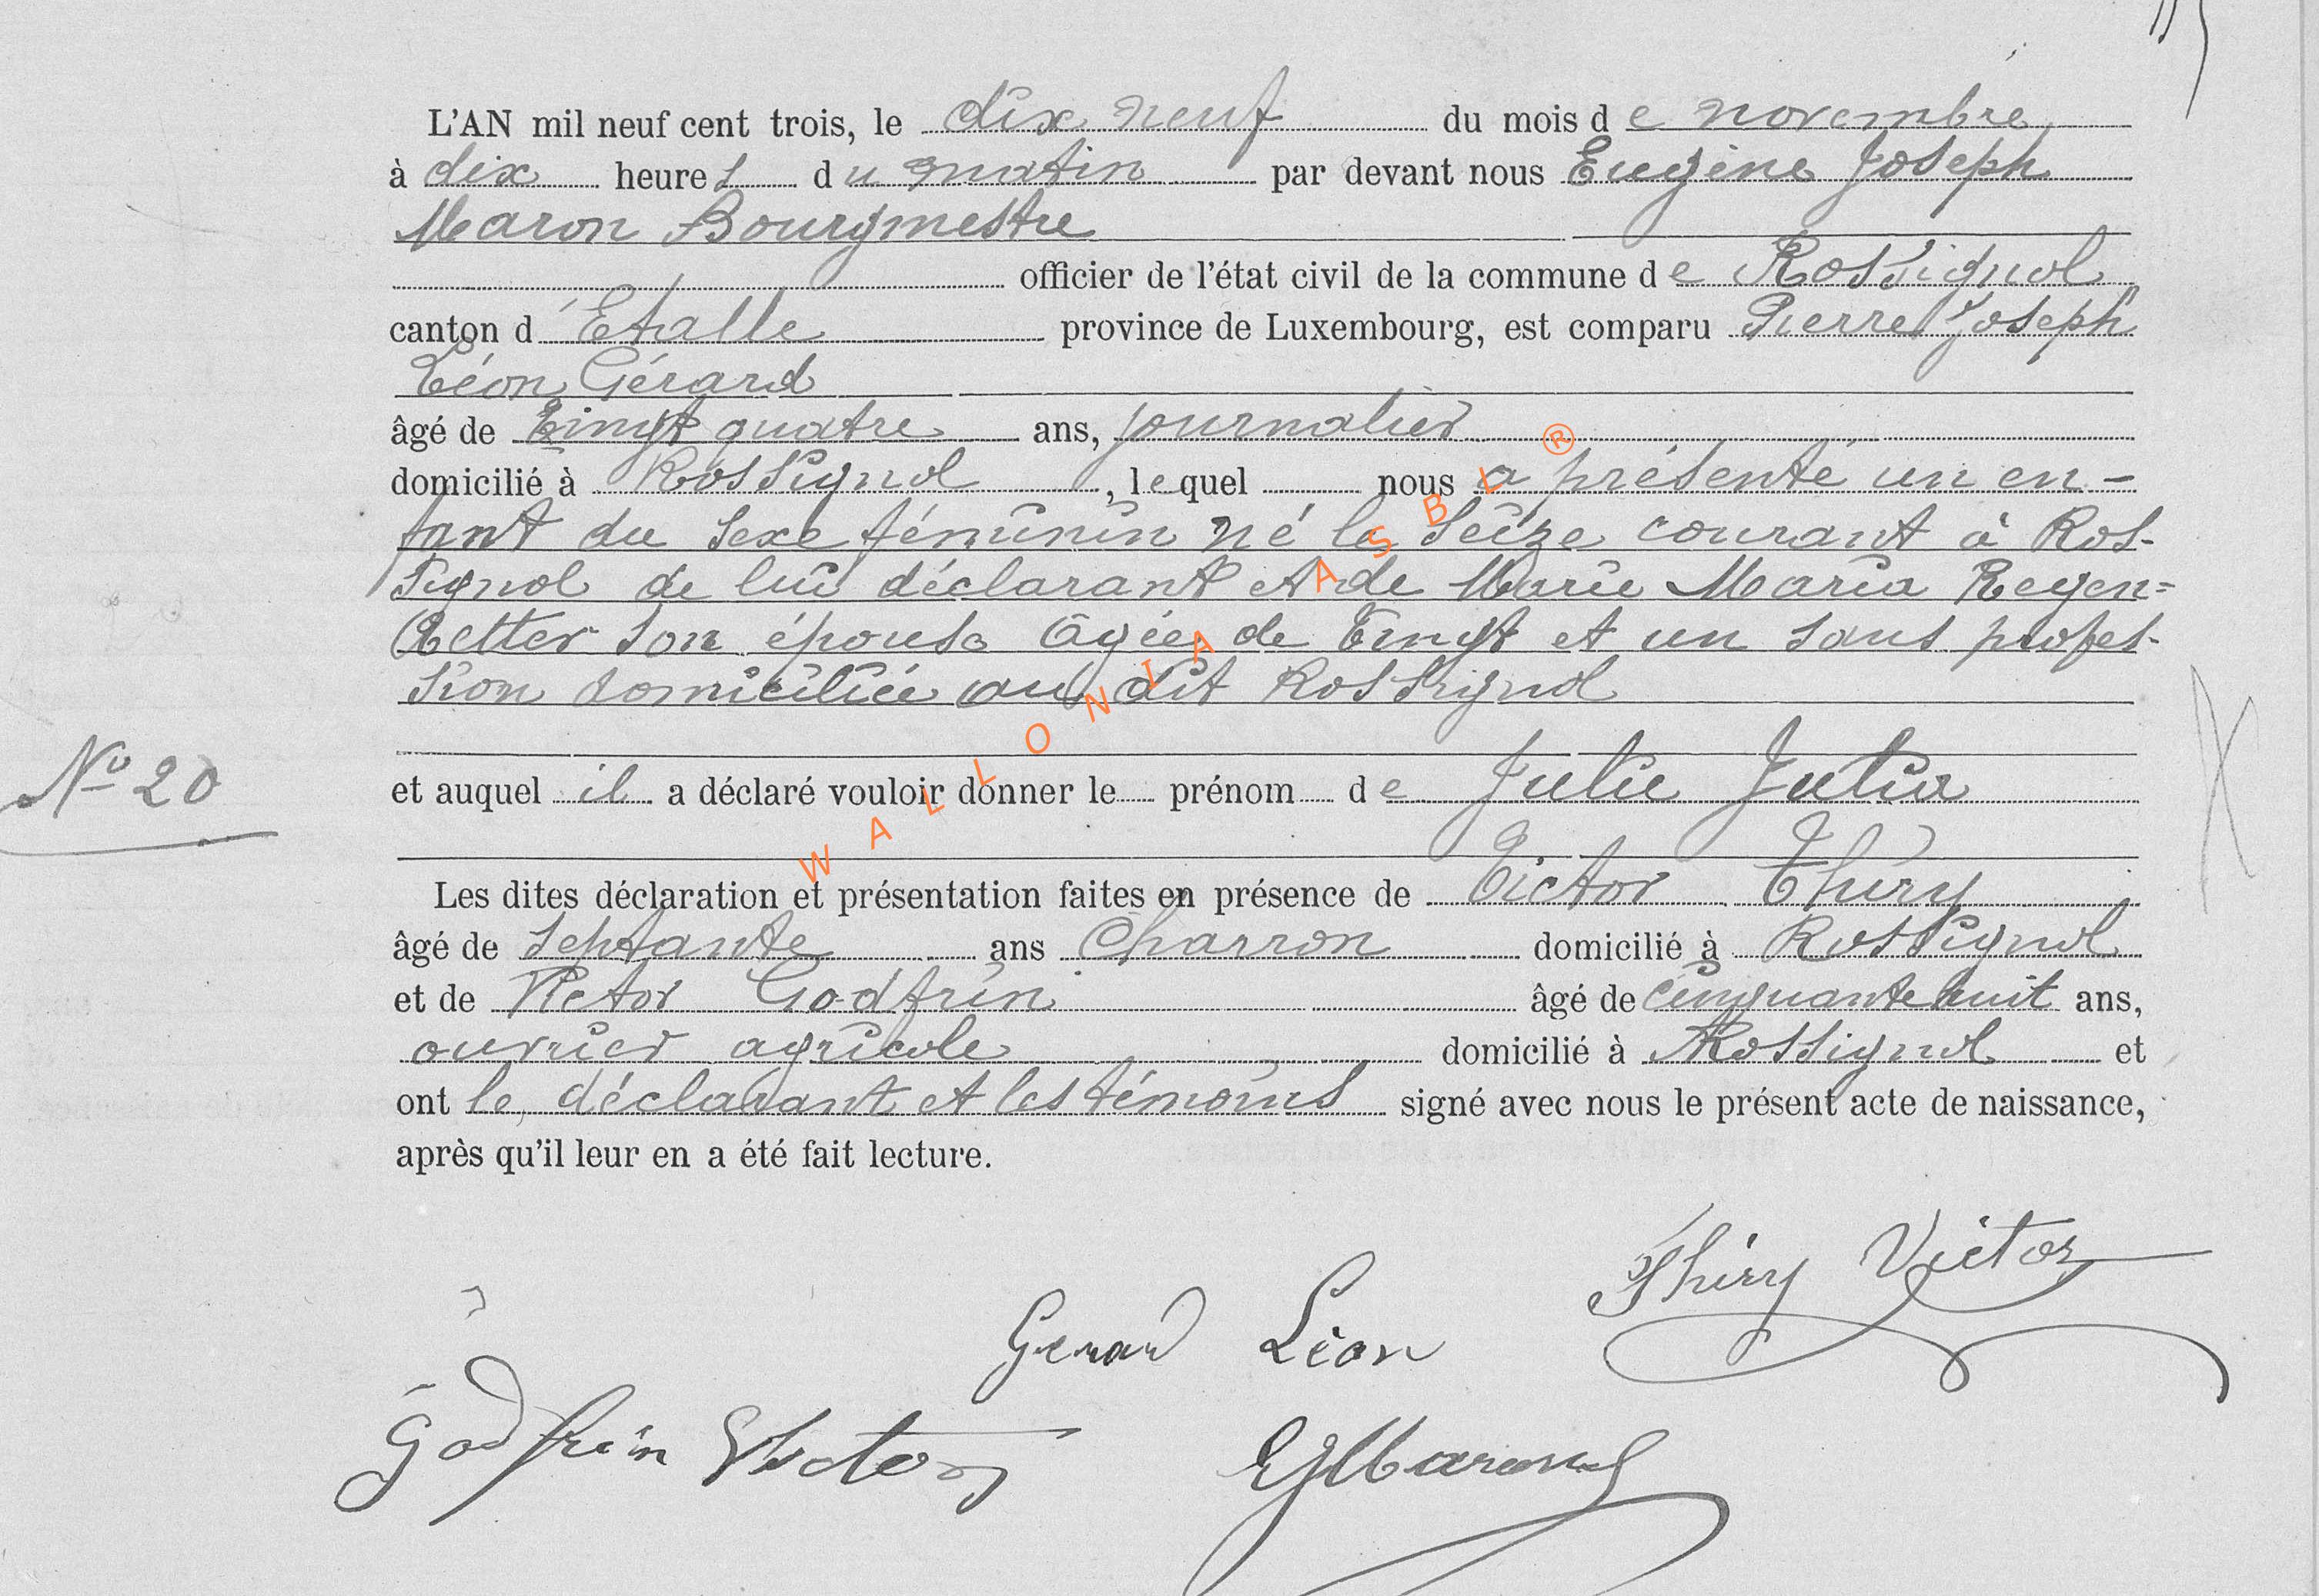 L'AN mil neuf cent trois, le dix neuf du mois de novembre
à dix heures du matin par devant nous Eugène Joseph
Maron Bourgmestre
officier de l'état civil de la commune de Rossignol
canton d'Etalle province de Luxembourg, est comparu Pierre Joseph
Léon Gérard
âgé de Vingt quatre ans, journalier
domicilié à Rossignol, lequel nous a présenté un en-
fant du sexe féminin né le seize courant à Ros-
signol de lui déclarant et de Marie Maria Regen-
Retter son épouse âgée de Vingt et un sans profes-
sion domiciliée au dit Rossignol
No 20
et auquel il a déclaré vouloir donner le prénom de Julie Julia
Les dites déclaration et présentation faites en présence de Victor Thiry
âgé de septante ans Charron domicilié à Rossignol
et de Victor Godfrin âgé de cinquante huit ans,
ouvrier agricole domicilié à Rossignol et
ont le déclarant et les témoins signé avec nous le présent acte de naissance,
après qu'il leur en a été fait lecture.
Thiry Victor
Gerard Léon
Godfrin Victor
EJMaron
WALLONIA ASBL ®